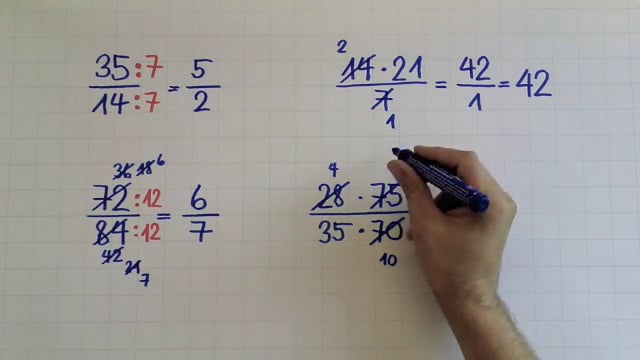 35:7 / 14:7 = 5 / 2
2
14 · 21 / 7 = 42 / 1 = 42
1
36 18 6
72:12 / 84:12 = 6 / 7
42 21 7
4
28 · 75 / 35 · 70
10